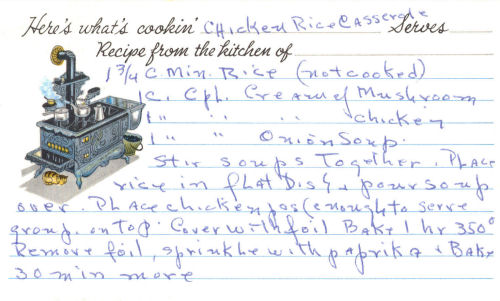 Here's what's cookin' Chicken Rice Casserole Serves
Recipe from the kitchen of
1 3/4 C. Min. Rice (not cooked)
1C. Cpl. Cream of Mushroom
1 " " " " chicken
1 " " Onion Soup.
Stir soups Together. Place
rice in flat Dish & pour soup
over. Place chicken pcs (enough to serve
group. on top. Cover with foil Bake 1 hr 350°
Remove foil, sprinkle with paprika & Bake
30 min more